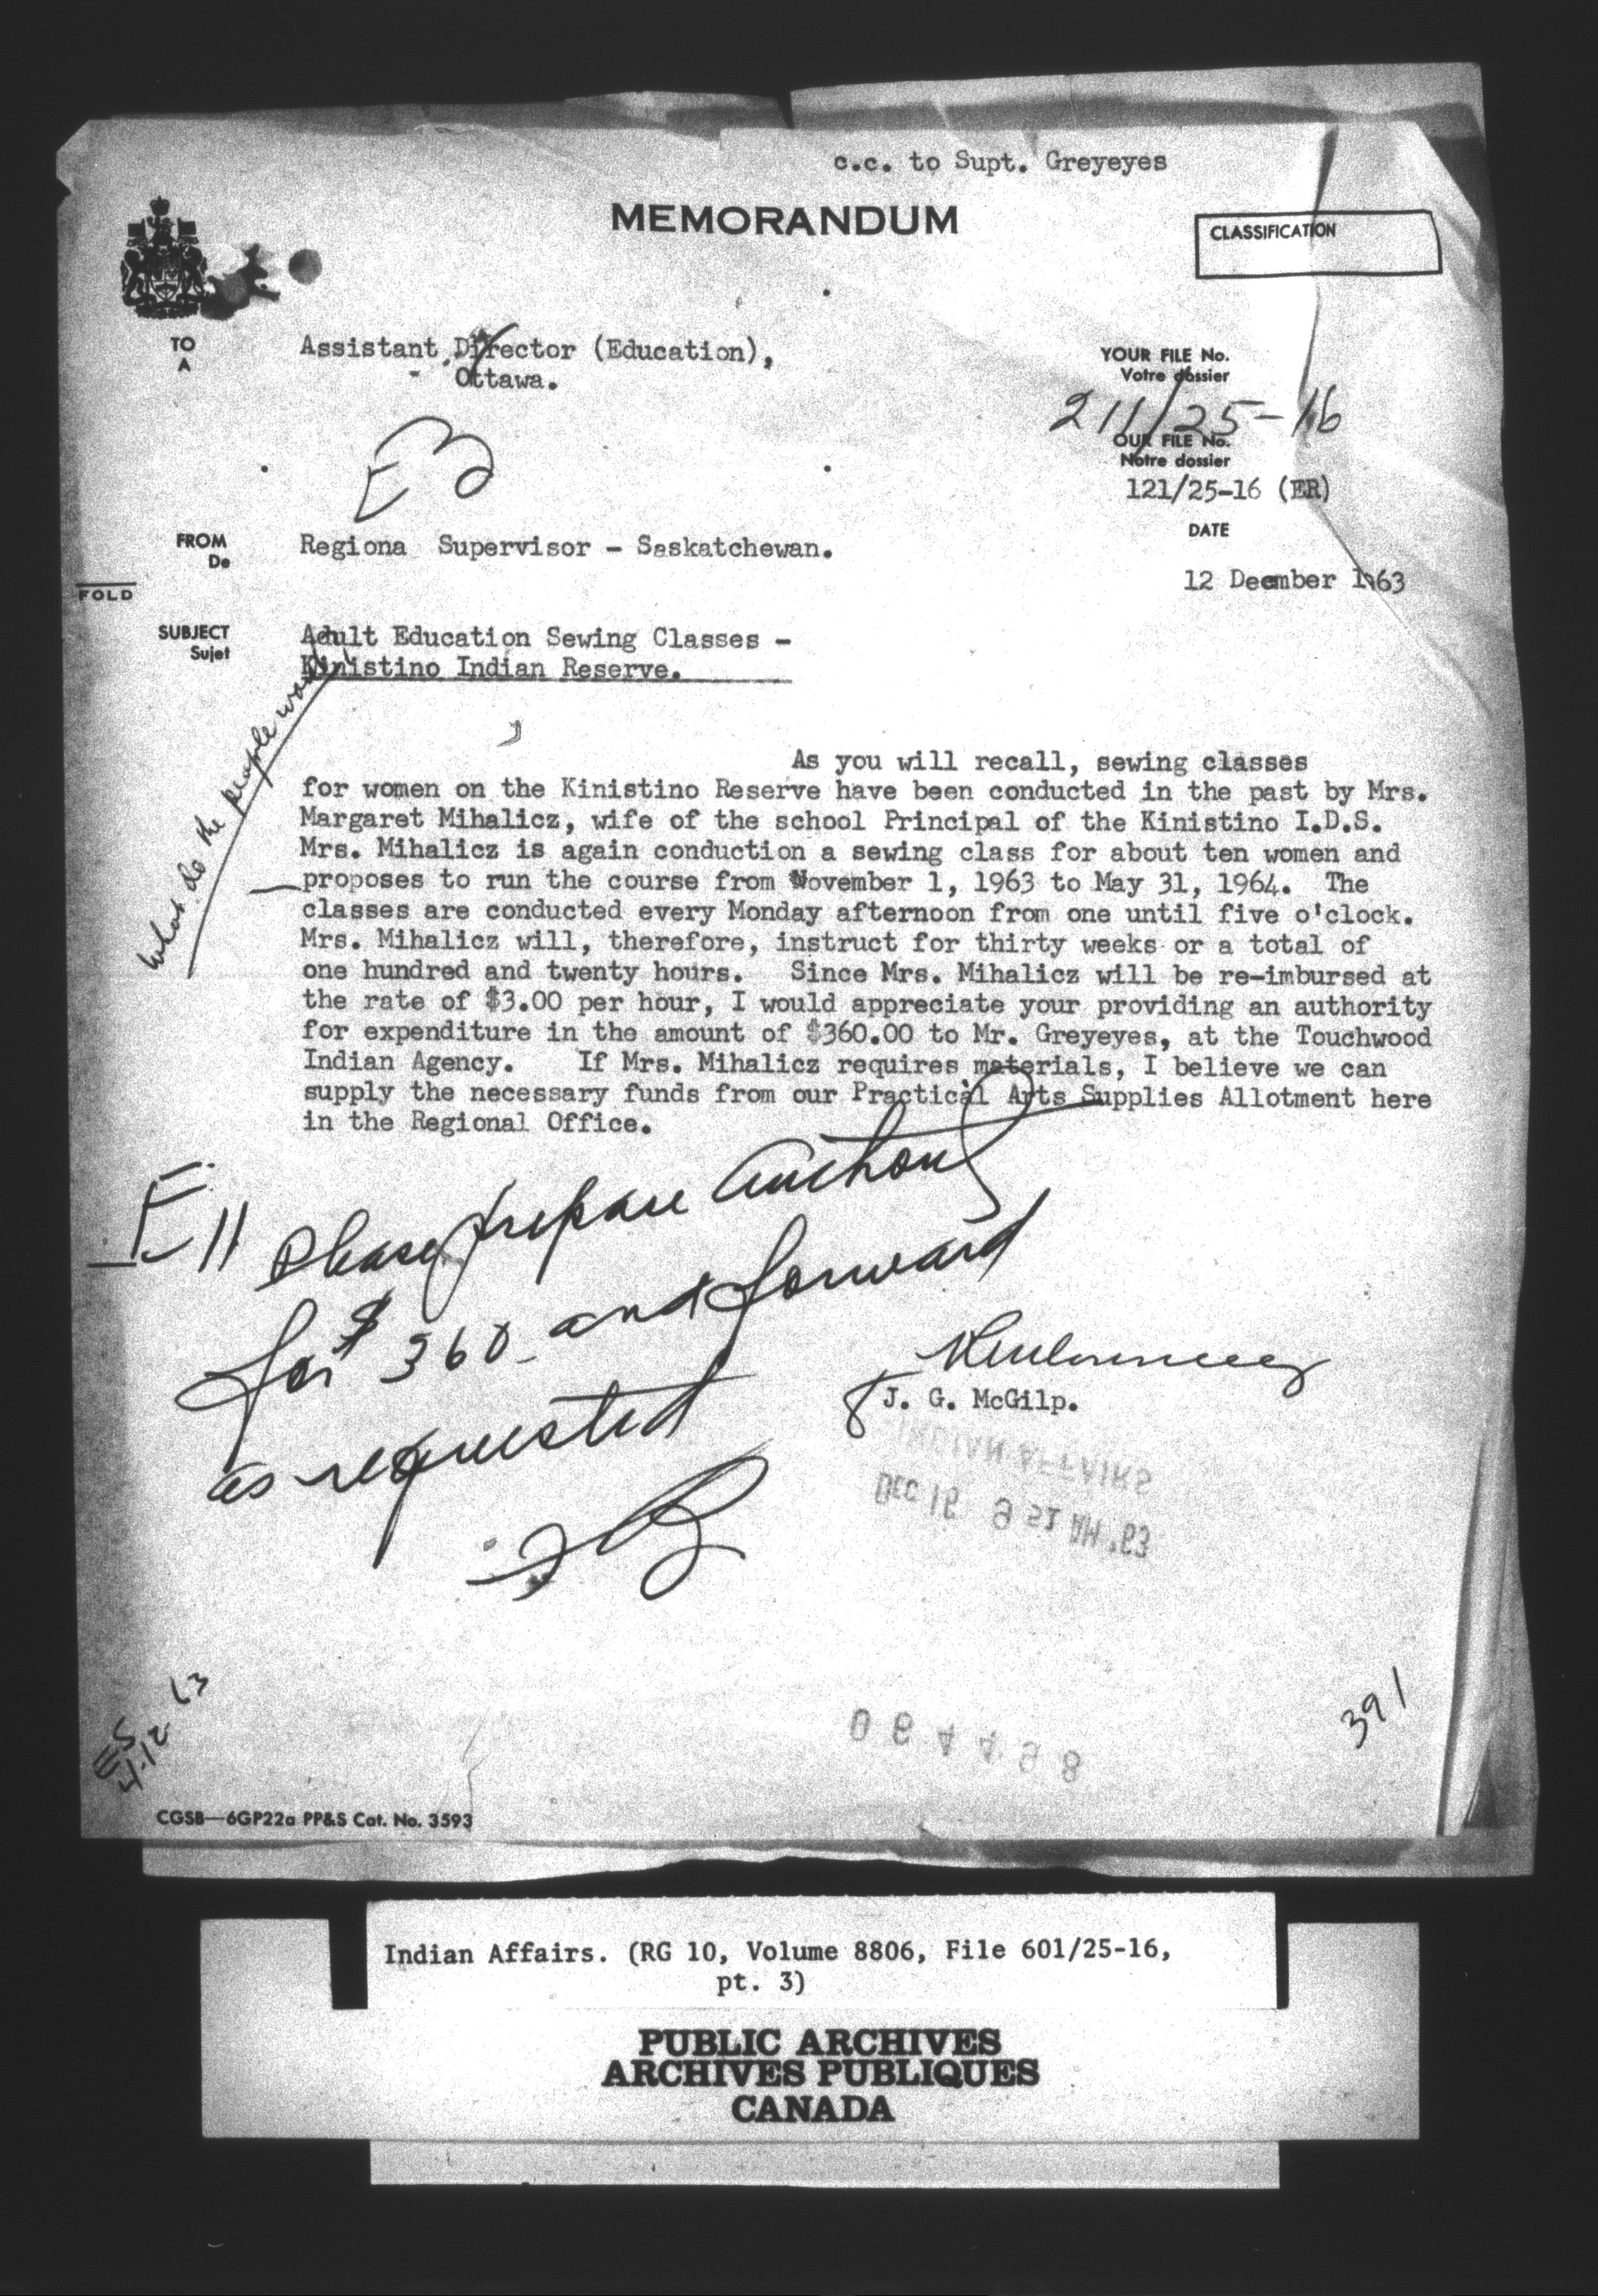 c.c. to Supt. Greyeyes
MEMORANDUM
CLASSIFICATION
TO
A
Assistant Director (Education),
Ottawa.
YOUR FILE No.
Votre dossier
211/25-16
OUR FILE No.
Notre dossier
121/25-16 (ER)
E3
FROM
De
Regiona Supervisor - Saskatchewan.
DATE
12 December 1963
FOLD
SUBJECT
Sujet
Adult Education Sewing Classes -
Kinistino Indian Reserve.
What do the people want
As you will recall, sewing classes
for women on the Kinistino Reserve have been conducted in the past by Mrs.
Margaret Mihalicz, wife of the school Principal of the Kinistino I.D.S.
Mrs. Mihalicz is again conduction a sewing class for about ten women and
proposes to run the course from November 1, 1963 to May 31, 1964. The
classes are conducted every Monday afternoon from one until five o'clock.
Mrs. Mihalicz will, therefore, instruct for thirty weeks or a total of
one hundred and twenty hours. Since Mrs. Mihalicz will be re-imbursed at
the rate of $3.00 per hour, I would appreciate your providing an authority
for expenditure in the amount of $360.00 to Mr. Greyeyes, at the Touchwood
Indian Agency. If Mrs. Mihalicz requires materials, I believe we can
supply the necessary funds from our Practical Arts Supplies Allotment here
in the Regional Office.
E11 Please prepare Authority
for $360- and forward
as requested
J. G. McGilp.
INDIAN AFFAIRS
DEC 16 9 51 AM '63
064498
391
CGSB—6GP22a PP&S Cat. No. 3593
Indian Affairs. (RG 10, Volume 8806, File 601/25-16,
pt. 3)
PUBLIC ARCHIVES
ARCHIVES PUBLIQUES
CANADA